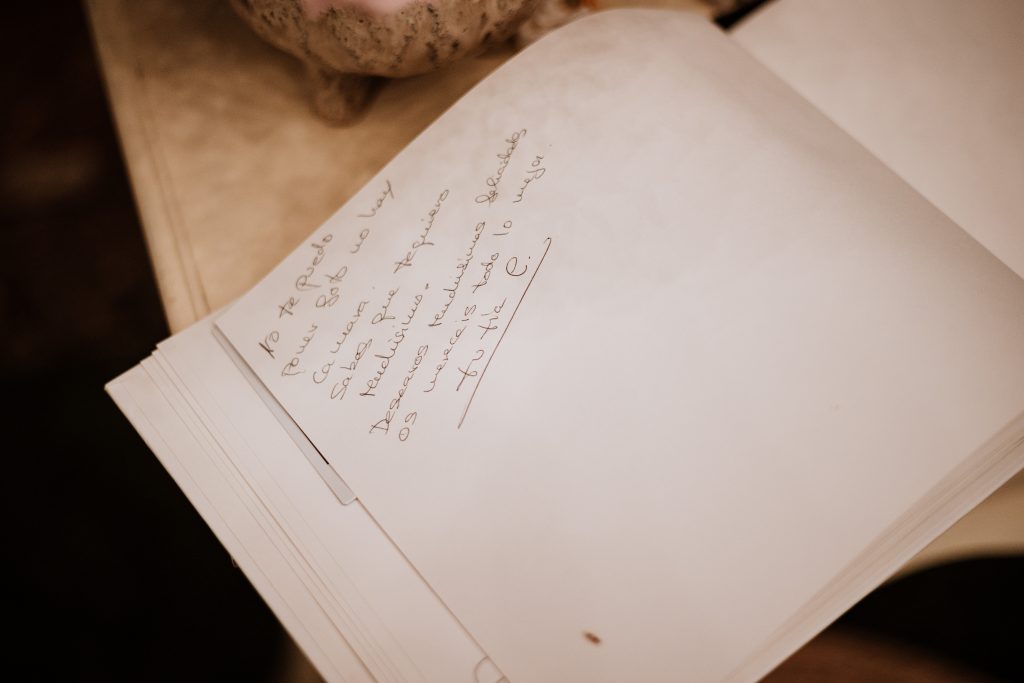 No te puedo
poner foto no hay
camara.
Sabes que te quiero
Muchisimo.
Desearos Muchisimas felicidades
os mereceis todo lo mejor.
tu tía C.